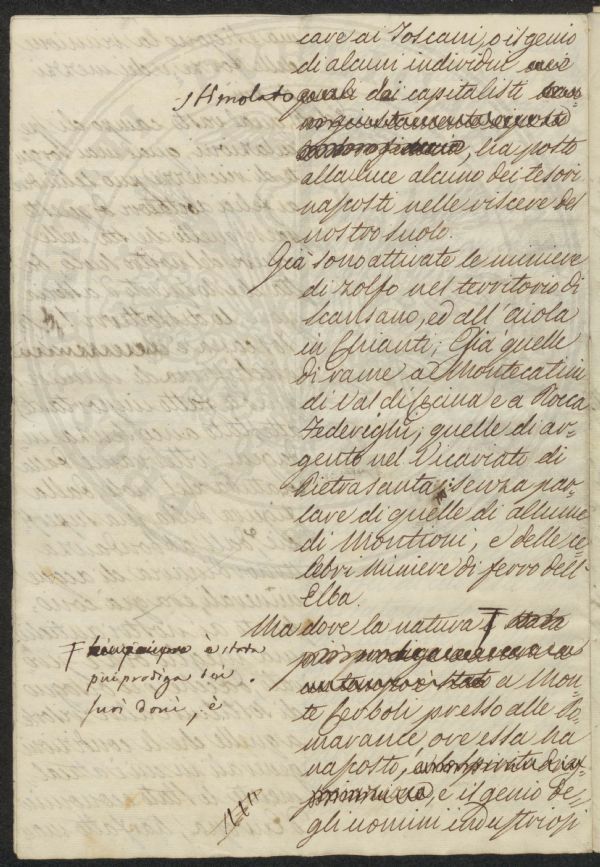 cave ai Toscani, o il genio
di alcuni individui
stimolato dai capitalisti
, ha posto
alla luce alcuno dei tesori
naposti nelle viscere del
nostro suolo.
Già sono attivate le miniere
di zolfo nel territorio di
Scansano, ed all'aiola
in Chianti; Già quelle
di rame a Montecatini
di Val di Cecina e a Rocca
Federighi; quelle di ar-
gento nel Vicariato di
Pietrasanta; senza par-
lare di quelle di allume
di Montioni, e delle ce-
lebri miniere di ferro dell'
Elba.
Ma dove la natura
è stata
più prodiga dei
suoi doni, è
a Mon-
te Cerboli presso alle Po-
marance, ove essa ha
naposto,
, e il genio de-
gli uomini industriosi